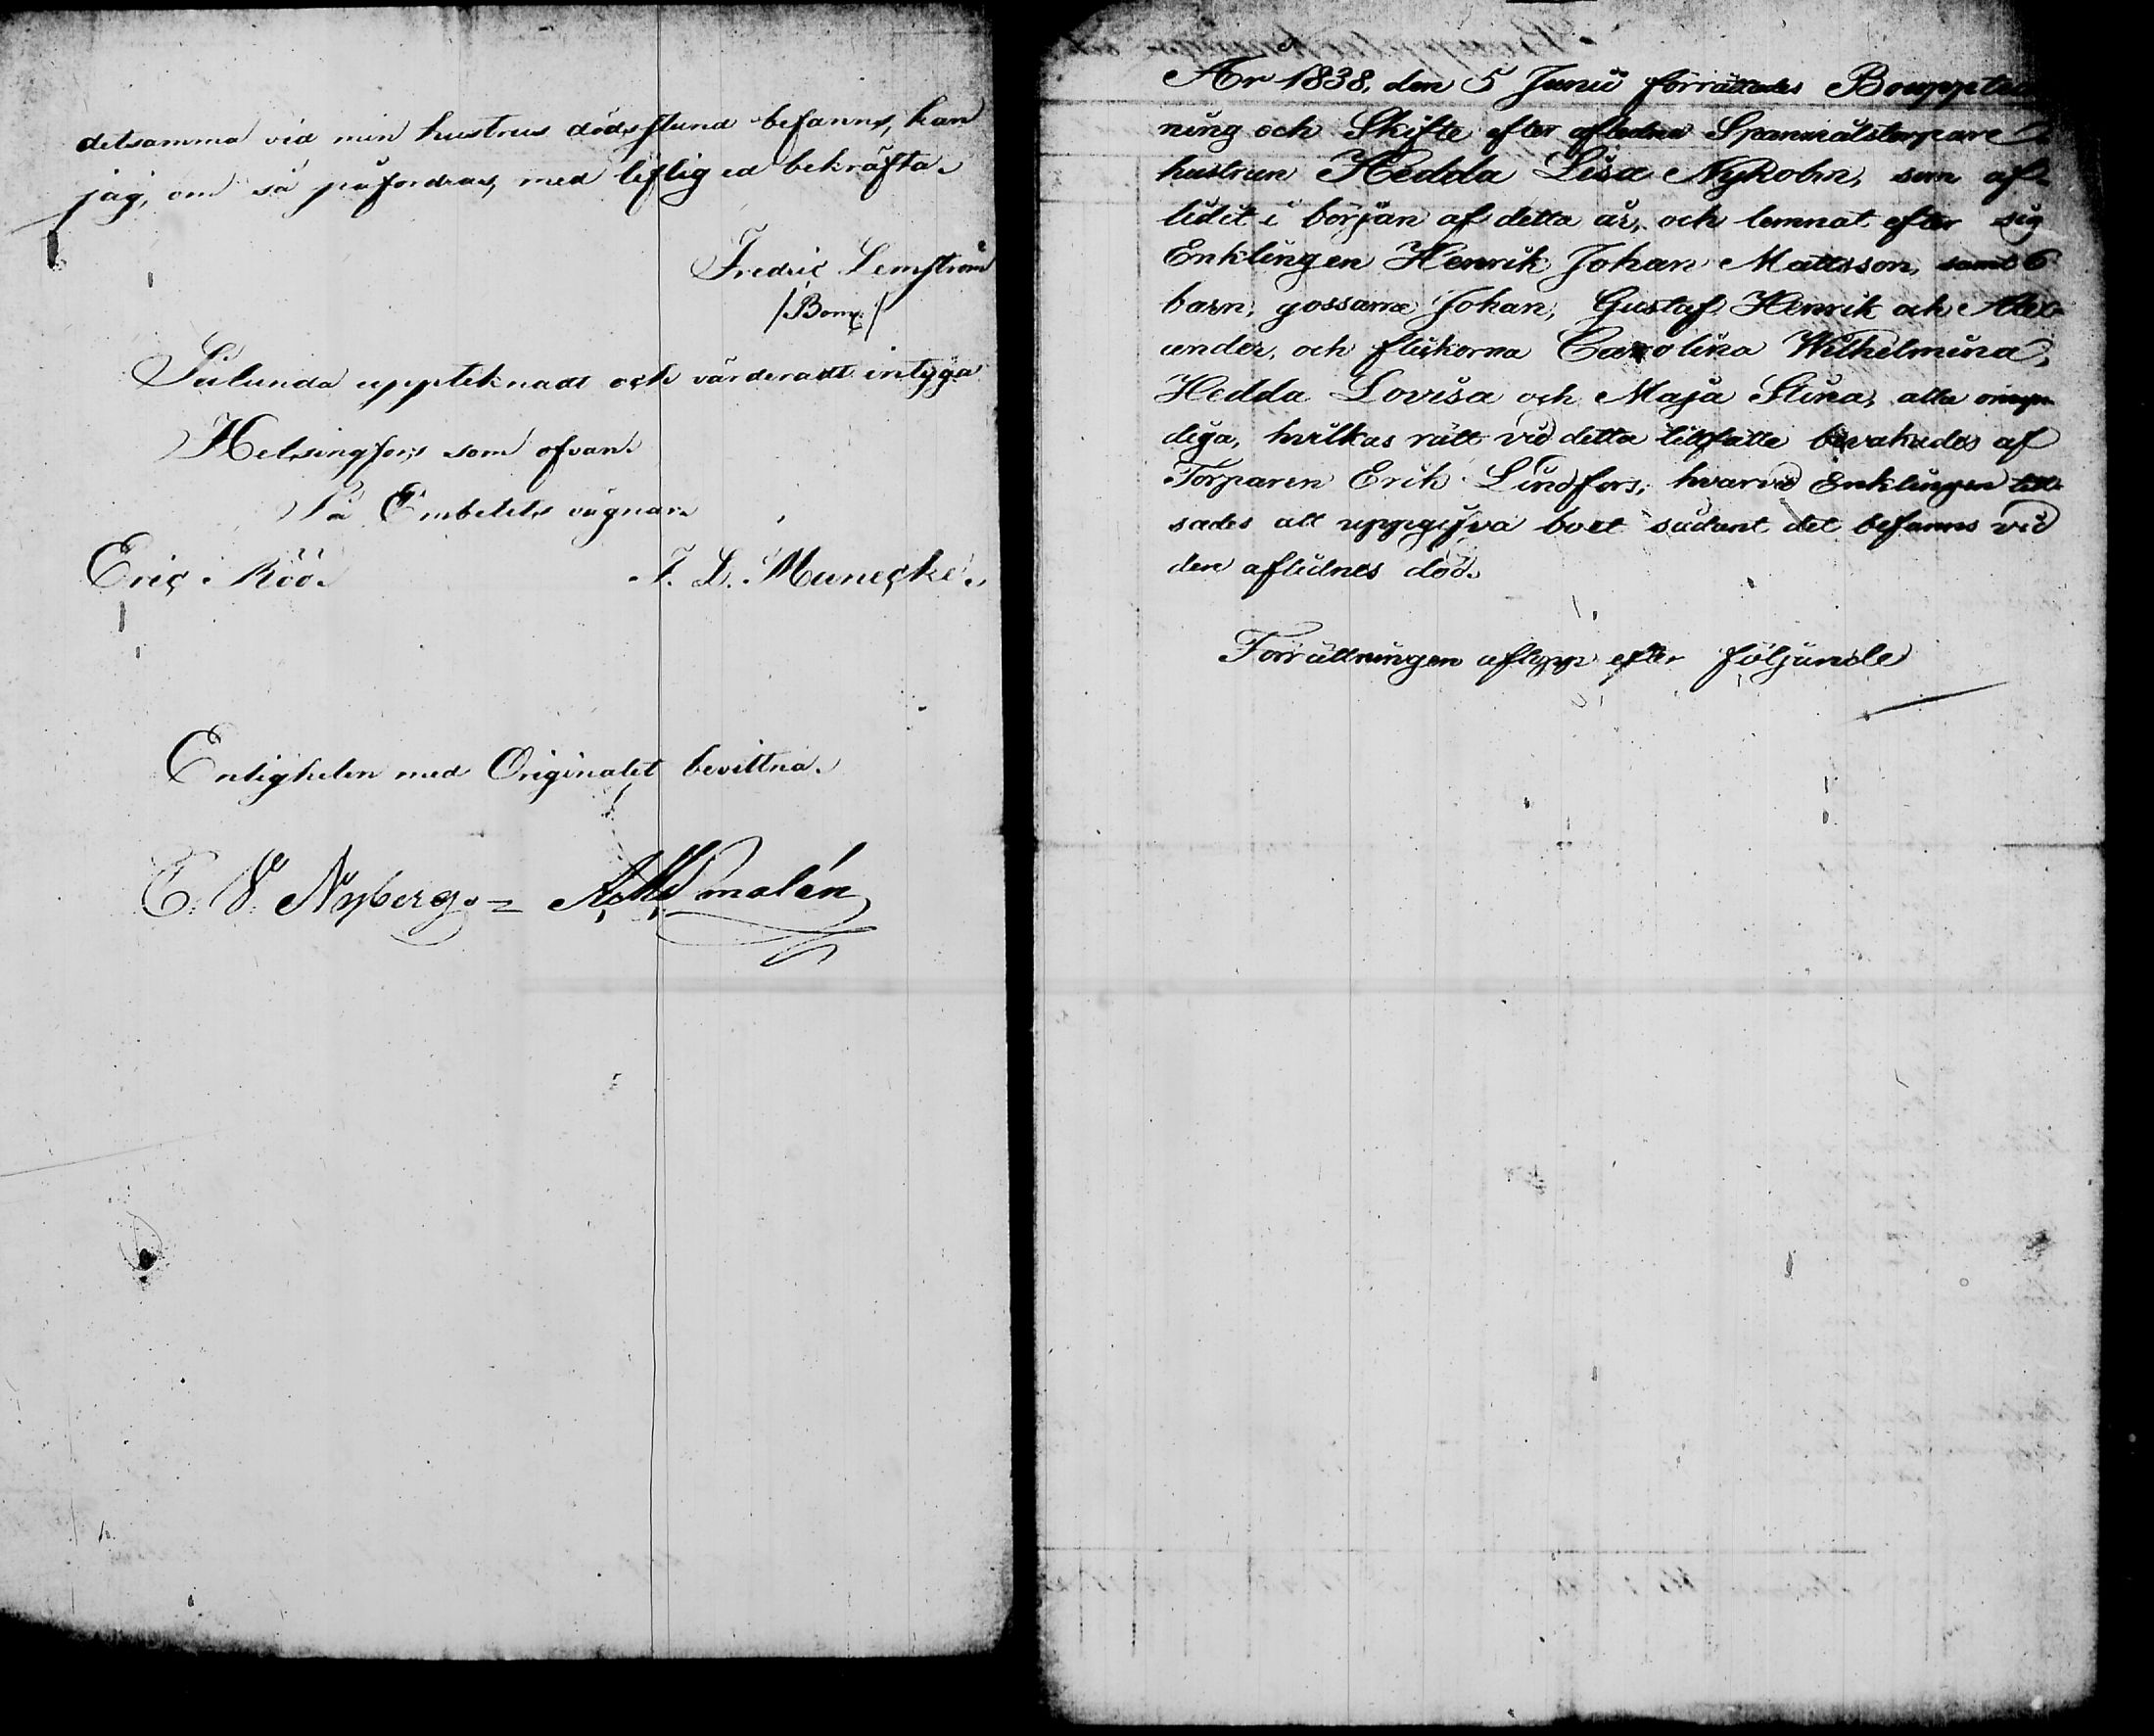 detsamma vid min hustrus dödsstund befanns, kan
jag, om så påfordras, med liflig ed bekräfta.
Fredric Lemström
/Bom:/
Sålunda uppteknadt och värderadt intyga
Helsingfors som ofvan.
På Embetets vägnar.
Eric Röö. F. L. Munecke.
Enligheten med Originalet bevittna.
C. W. Nyberg. = Smalén
År 1838, den 5 Junii förrättades Bouppteck
ning och Skifte efter aflidna Spanmålstorpare
hustrun Hedda Lisa Nykohn, som af-
lidit i början af detta år, och lemnat efter sig
Enklingen Henrik Johan Mattsson, samt 6
barn, gossarne Johan, Gustaf Henrik och Alex-
ander, och flickorna Carolina Wilhelmina,
Hedda Lovisa och Maja Stina, alla omyn
diga, hvilkas rätt vid detta tillfälle bevakades af
Torparen Erik Lindfors; hvarvid Enklingen till-
sades att uppgifva boet sådant det befanns vid
den aflidnes död.
Förrättningen aflopp efter följande